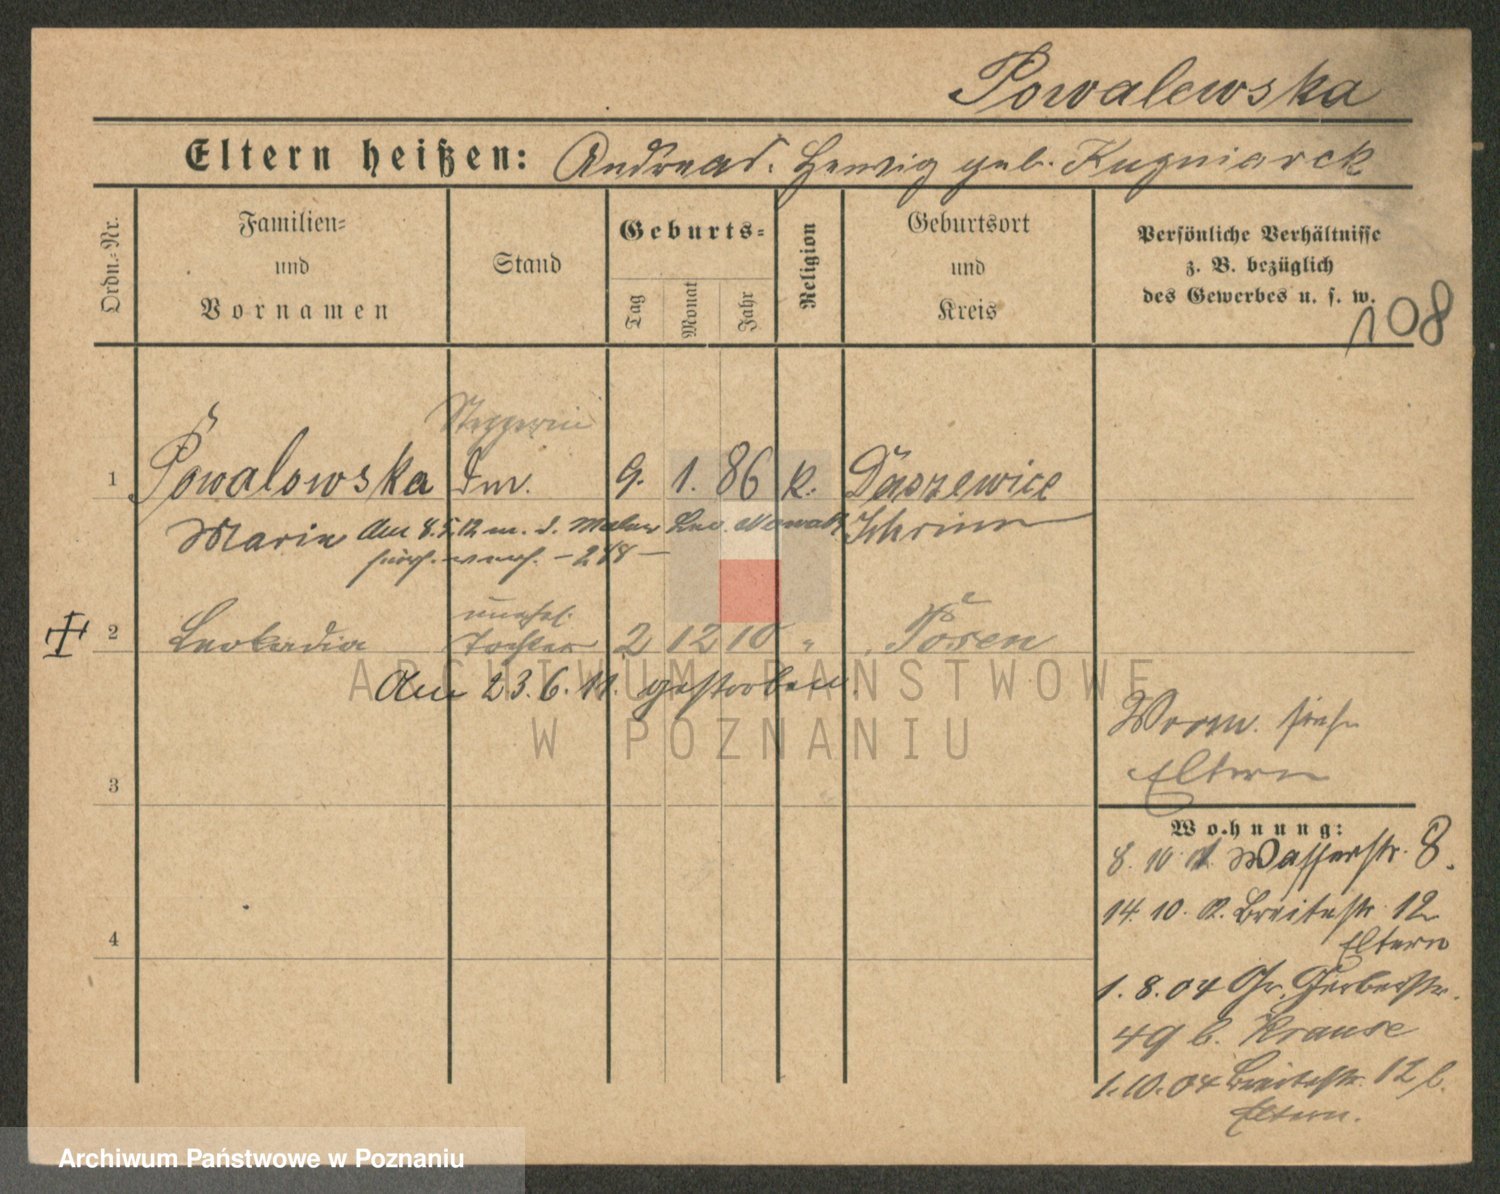 Powalewska
Eltern heißen: Andreas. Hedwig geb. Kuzniarek
Ordn.-Nr.
Familien-
und
Vornamen
Stand
Geburts-
Tag
Monat
Jahr
Religion
Geburtsort
und
Kreis
Persönliche Verhältnisse
z. B. bezüglich
des Gewerbes u. s. w.
108
Stepperin
1 Powalowska Dm. 9. 1. 86 k. Daszewice
Marie Am 8.5.12 m. d. Maler Leo Nowak Schrimm
2
unehel.
Leokadia Tochter 2 12 10 " Posen
Am 23.6.11. gestorben.
Vorm. siehe
Eltern
3
Wohnung:
8. 10. Wasserstr. 8.
14. 10. 02. Breitestr. 12
Eltern
4
1. 8. 04 Gr. Gerberstr.
49 b. Krause
1. 10. 04 Breitestr. 12 b.
Eltern.
ARCHIWUM PAŃSTWOWE
W POZNANIU
Archiwum Państwowe w Poznaniu